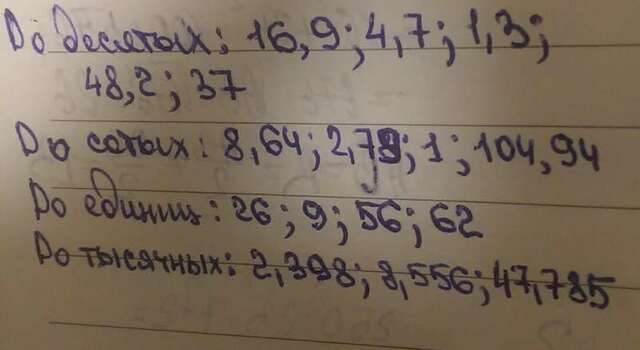 До десятых: 16,9; 4,7; 1,3;
48,2; 37
До сотых: 8,64; 2,79; 1; 104,94
До единиц: 26; 9; 56; 62
До тысячных: 2,398; 8,556; 47,785